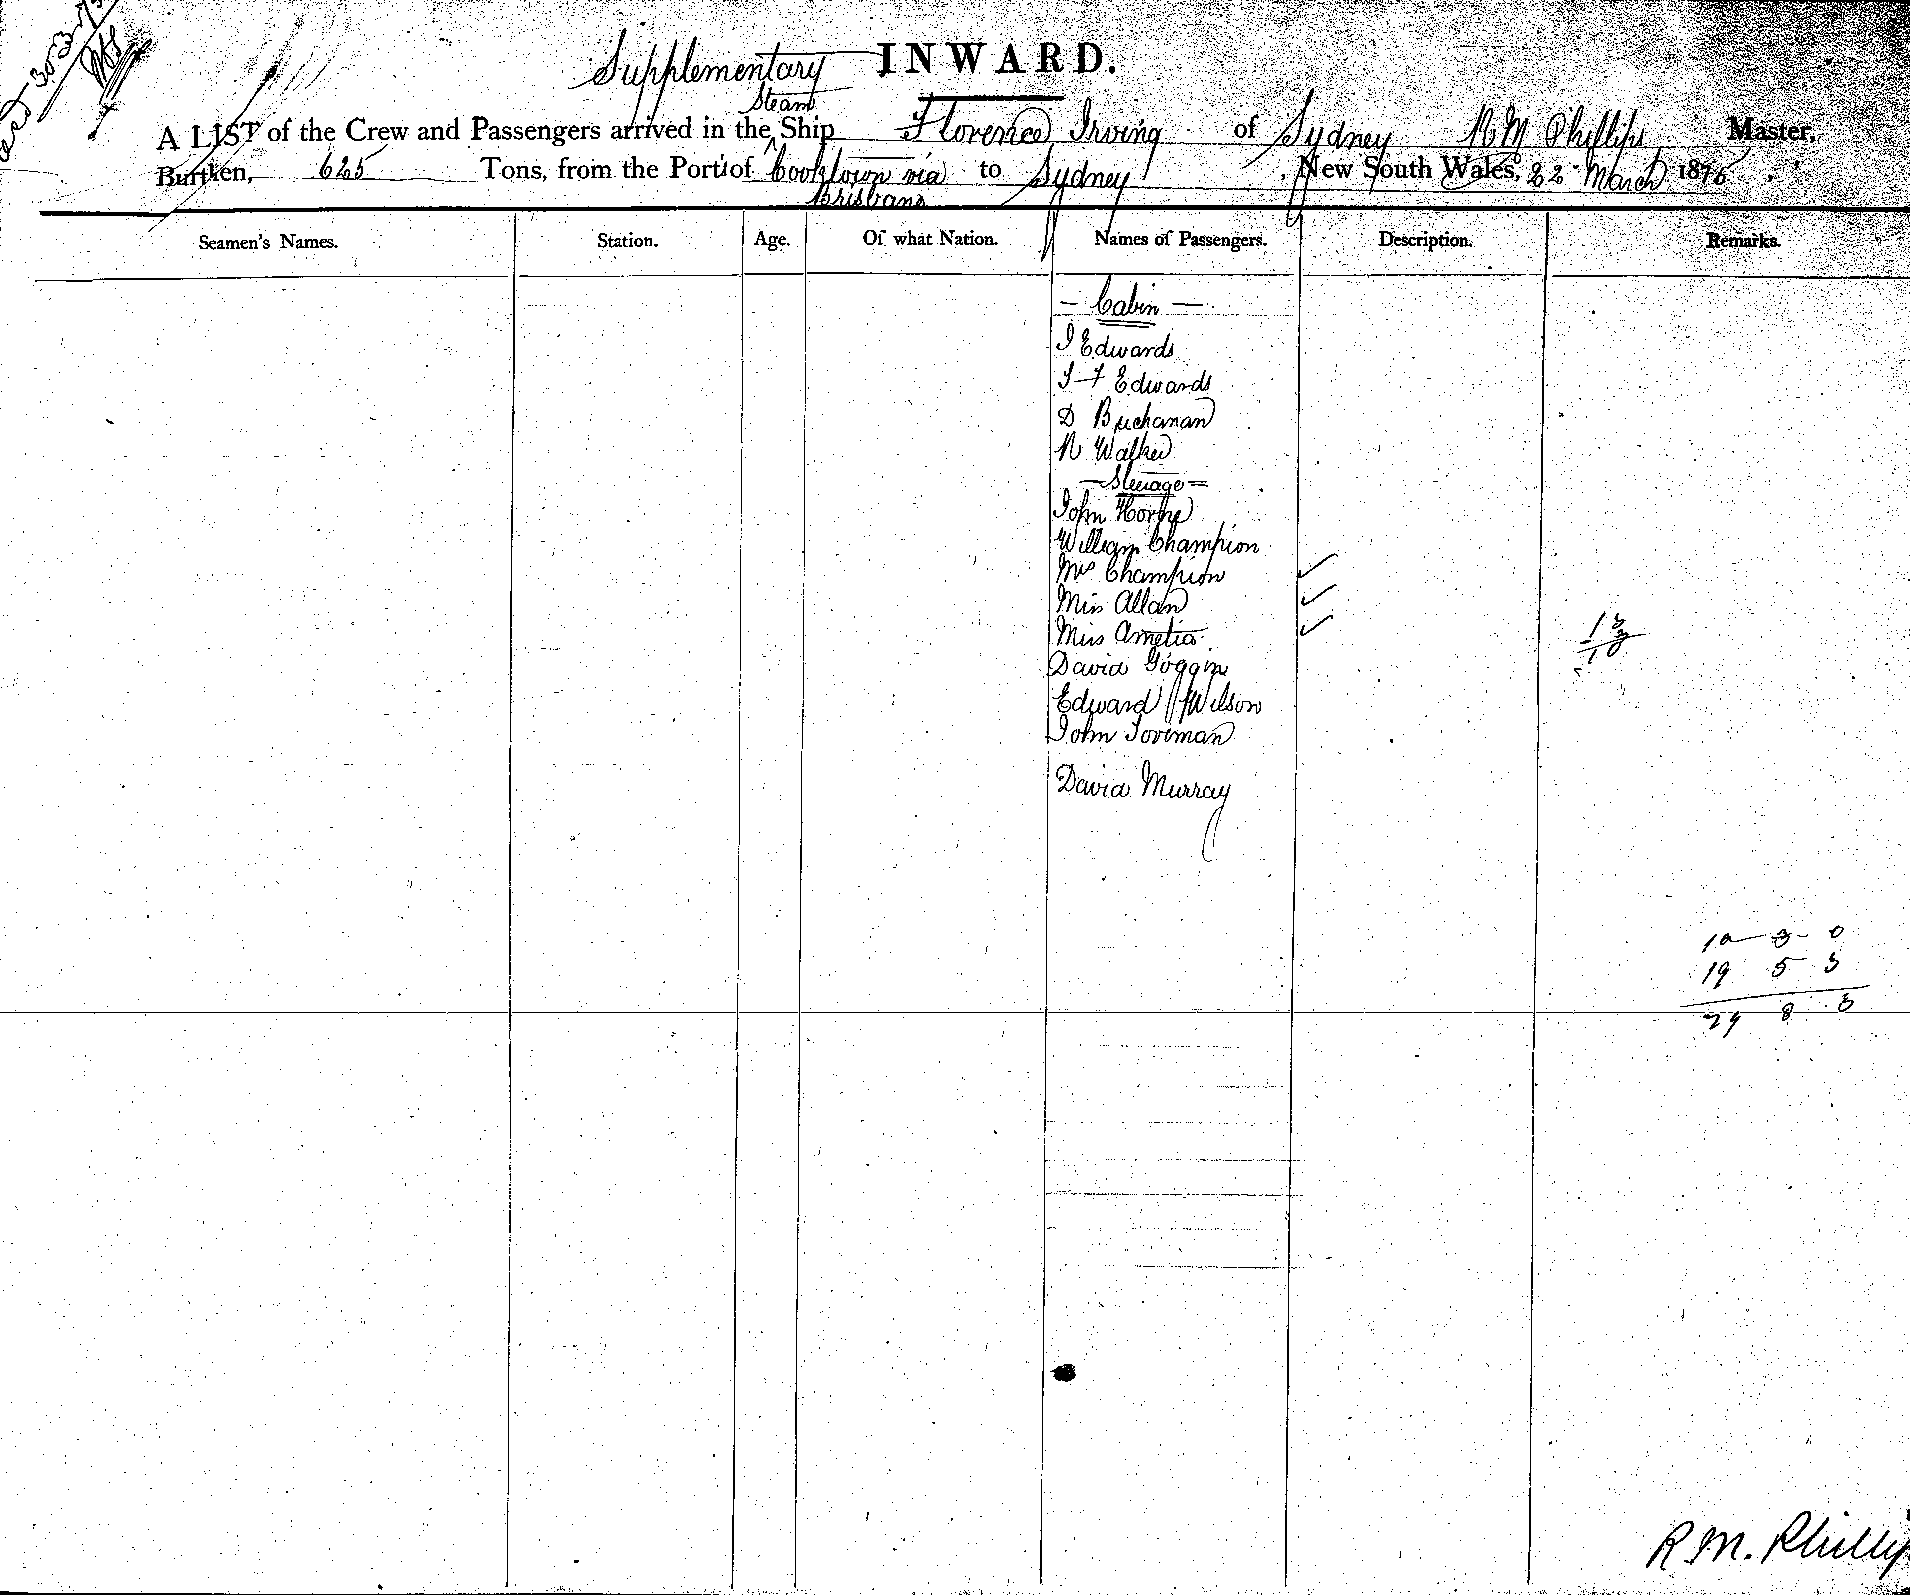 Supplementary INWARD.
Steam
A LIST of the Crew and Passengers arrived in the Ship Florence Irving of Sydney R M Phillips Master,
Burthen, 625 Tons, from the Port of Cooktown via to Sydney, New South Wales, 22 March 1876
Brisbane
Seamen's Names. Station. Age. Of what Nation. Names of Passengers. Description. Remarks.
— Cabin —
J Edwards
D Buchanan
R Walker
— Steerage —
John
William Champion
Mrs Champion
Miss Allan
Miss Amelia
David Goggin
Edward Wilson
John
David Murray
13
3
10
10 3 0
19 5 3
29 8 3
R. M. Phillip